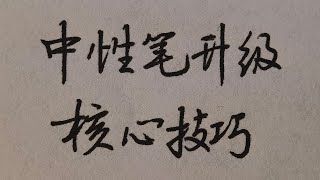 中性笔升级
核心技巧